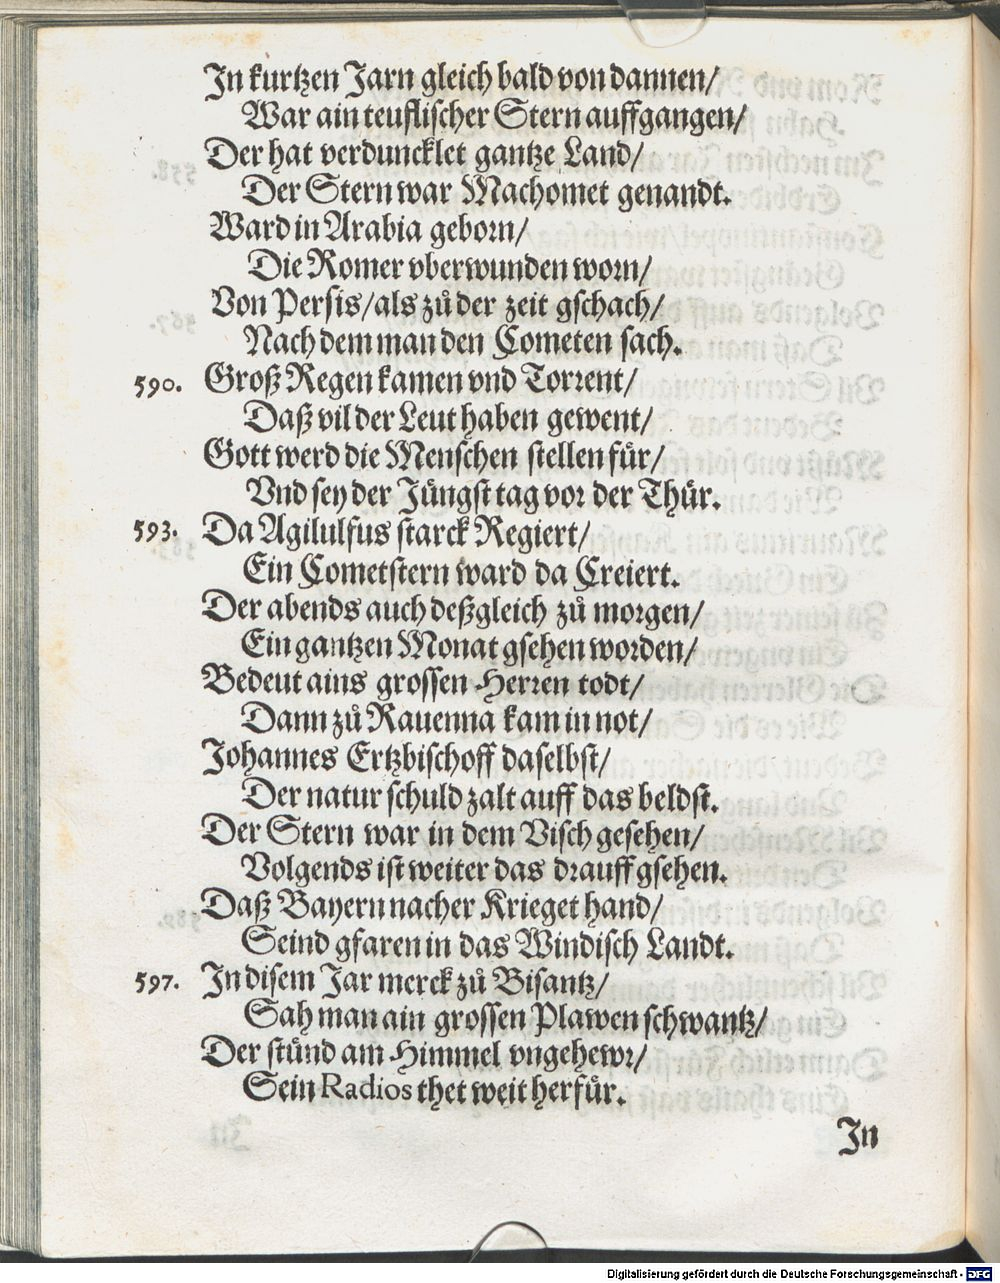 In kurtzen Jarn gleich bald von dannen/
War ain teuflischer Stern auffgangen/
Der hat verduncklet gantze Land/
Der Stern war Machomet genandt.
Ward in Arabia geborn/
Die Romer vberwunden worn/
Von Persis/als zů der zeit gschach/
Nach dem man den Cometen sach.
590. Groß Regen kamen vnd Torrent/
Daß vil der Leut haben gewent/
Gott werd die Menschen stellen für/
Vnd sey der Jüngst tag vor der Thür.
593. Da Agilulfus starck Regiert/
Ein Cometstern ward da Creiert.
Der abends auch deßgleich zů morgen/
Ein gantzen Monat gsehen worden/
Bedeut ains grossen Herren todt/
Dann zů Rauenna kam in not/
Johannes Ertzbischoff daselbst/
Der natur schuld zalt auff das beldst.
Der Stern war in dem Visch gesehen/
Volgends ist weiter das drauff gsehen.
Daß Bayern nacher Krieget hand/
Seind gfaren in das Windisch Landt.
597. In disem Jar merck zů Bisantz/
Sah man ain grossen Plawen schwantz/
Der stůnd am Himmel vngehewr/
Sein Radios thet weit herfür.
In
Digitalisierung gefördert durch die Deutsche Forschungsgemeinschaft - DFG